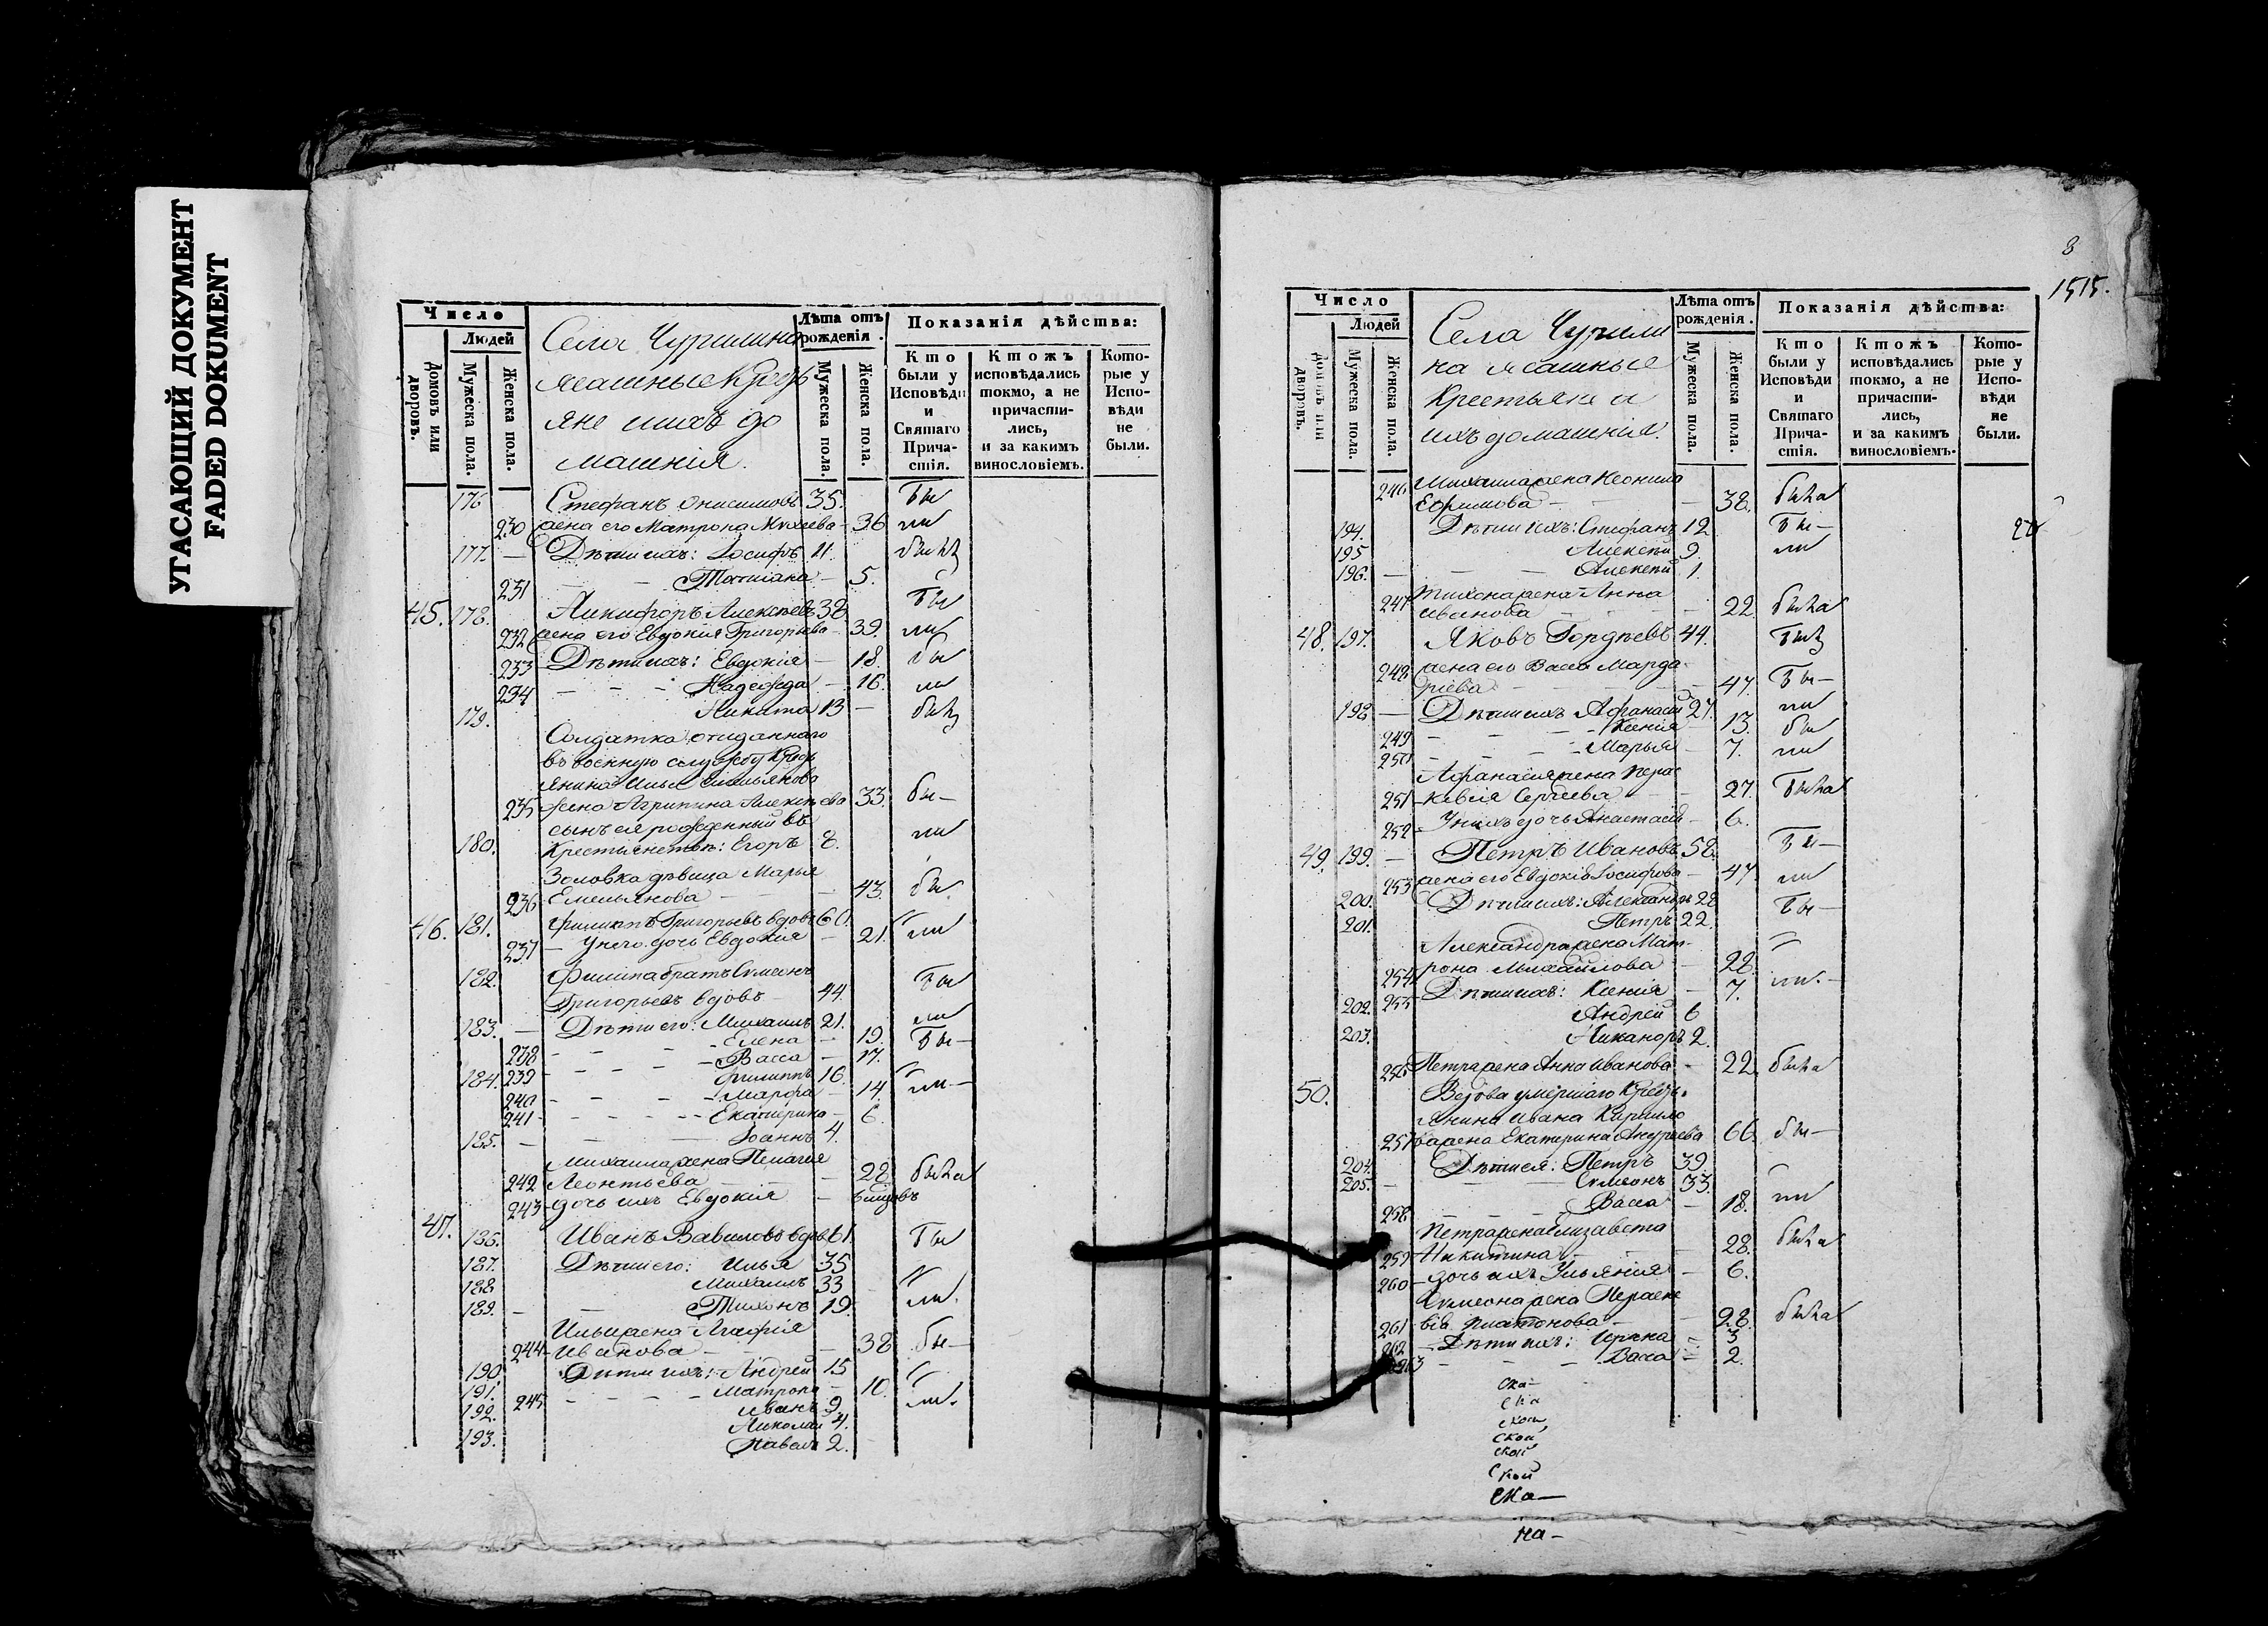 УГАСАЮЩИЙ ДОКУМЕНТ
FADED DOKUMENT
Число
Людей
Домовъ или дворовъ.
Мужеска пола.
Женска пола.
Села Чурилина
ясашные Крестьяне и ихъ домашнія.
Лѣта отъ рожденія.
Мужеска пола.
Женска пола.
Показанія дѣйства:
Кто были у Исповѣди и Святаго Причастія.
Ктожъ исповѣдались токмо, а не причастились, и за какимъ винословіемъ.
Которые у Исповѣди не были.
176 Стефанъ Онисимовъ 35. бы
230 жена его Матрона Михеева 36 ли
177. Дѣти ихъ: Іосифъ 11.
231 Татиана 5.
45. 178. Никифоръ Алексѣевъ 38 бы
232 жена его Евдокия Григорьева 39. ли
233 Дѣти ихъ: Евдокія 18. бы
234 Надежда 16. ли
179. Никита 13
Солдатка отданнаго
въ военную службу Кресть
янина Ильи Емельянова
235 жена Агрипина Алексѣева 33. бы
сынъ ея рожденный въ
180. Крестьянствѣ: Егоръ 8. ли
Золовка дѣвица Марья
236 Емельянова 43. бы
46. 181. Филиппъ Григорьевъ вдовъ 60. ли
237 У него дочь Евдокия 21.
182. Филипа братъ Симеонъ
Григорьевъ вдовъ 44. бы
183. Дѣти его: Михаилъ 21. ли
238 Елена 19. бы
239 Васса 17.
184. Филиппъ 16.
240 Марфа 14. ли
241 Екатерина 6.
185. Іоаннъ 4.
Михаила жена Пелагия
242 Леонтьева 22. была
243 дочь ихъ Евдокия
47. 186. Иванъ Вавиловъ вдовъ 61. бы
187. Дѣти его: Илья 35
188 Михаилъ 33
189. Тихонъ 19. ли.
Ильи жена Агафія
244 Иванова 38 бы
190. Дѣти ихъ: Андрей 15
191. 245 Матрона 10. ли.
192. Иванъ 9
Николай 4.
193. Павелъ 2.
8
1515.
Число
Людей
Домовъ или дворовъ.
Мужеска пола.
Женска пола.
Села Чурили
на ясашные
Крестьяне и
ихъ домашнія.
Лѣта отъ рожденія.
Мужеска пола.
Женска пола.
Показанія дѣйства:
Кто были у Исповѣди и Святаго Причастія.
Ктожъ исповѣдались токмо, а не причастились, и за какимъ винословіемъ.
Которые у Исповѣди не были.
246 Михаила жена Неонила
Ефимова 38. была
194. Дѣти ихъ: Стефанъ 12 бы
195 Алексѣй 9. ли
196. Алексѣй 1.
Тихона жена Анна
247 Иванова 22. была
48. 197. Яковъ Гордѣевъ 44.
248 жена его Васса Марда
ріева 47. бы
198 Дѣти ихъ Афанасій 27. ли
249 Ксенія 13. бы
250 Марья 7. ли
Афанасія жена Парас
251 кевія Сергѣева 27. была
252 У нихъ дочь Анастасія 6.
49. 199. Петръ Ивановъ 58. бы
253 жена его Евдокія Іосифова 47 ли
200. Дѣти ихъ: Александръ 28
201. Петръ 22. бы
Александра жена Мат
254 рона Михайлова 28.
255 Дѣти ихъ: Ксенія 7. ли.
202. Андрей 6
203. Никаноръ 2.
256 Петра жена Анна Иванова 22. была
50. Вдова умершаго Кресть
янина Ивана Кирило
257 ва жена Екатерина Андреева 66. бы
204. Дѣти ея: Петръ 39
205. Симеонъ 33.
258 Васса 18. ли
Петра жена Елизавета
259 Никитина 28. была
260 дочь ихъ Ульянія 6.
Симеона жена Параске
261 вія Платонова 28. была
262 Дѣти ихъ: Ирина 3
263 Васса 2.
ска
ска
ской
ской
ской
ской
ска
на